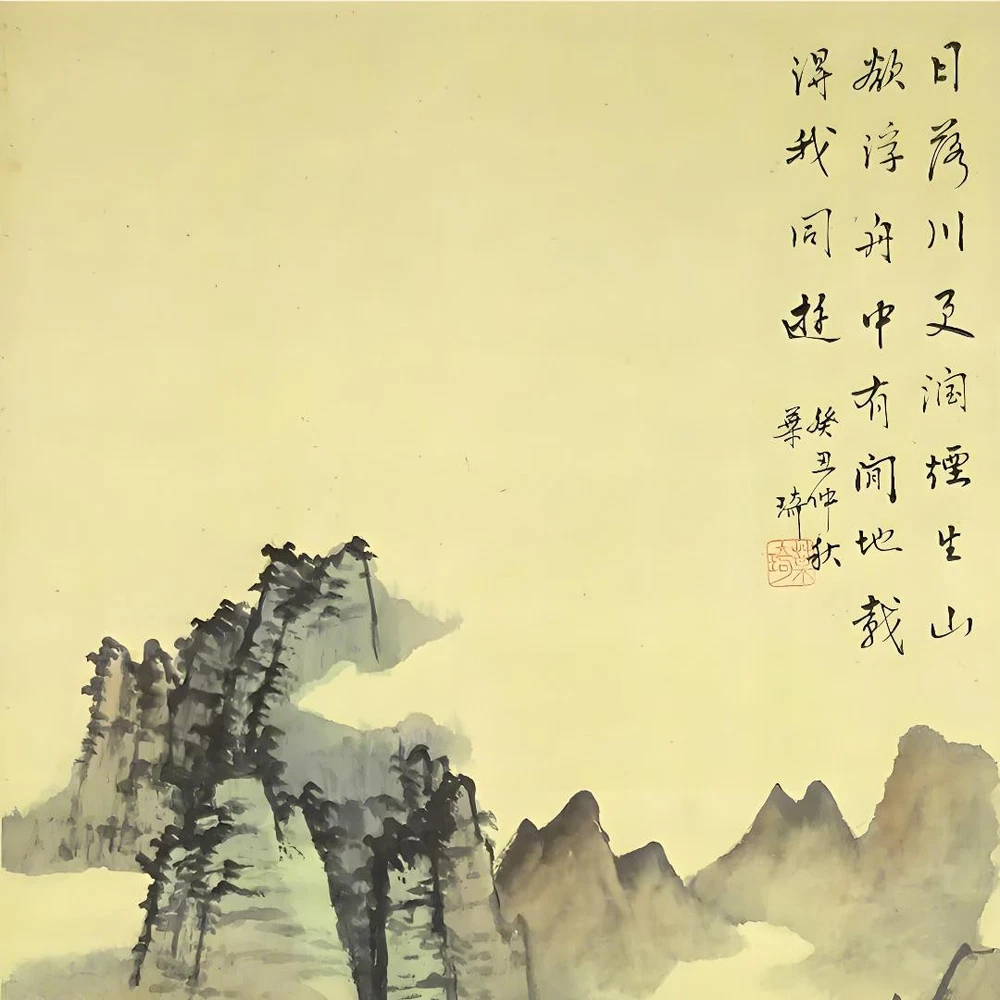 日落川更濶煙生山
欲浮舟中有閒地載
得我同遊
癸丑仲秋
葉琦
葉琦